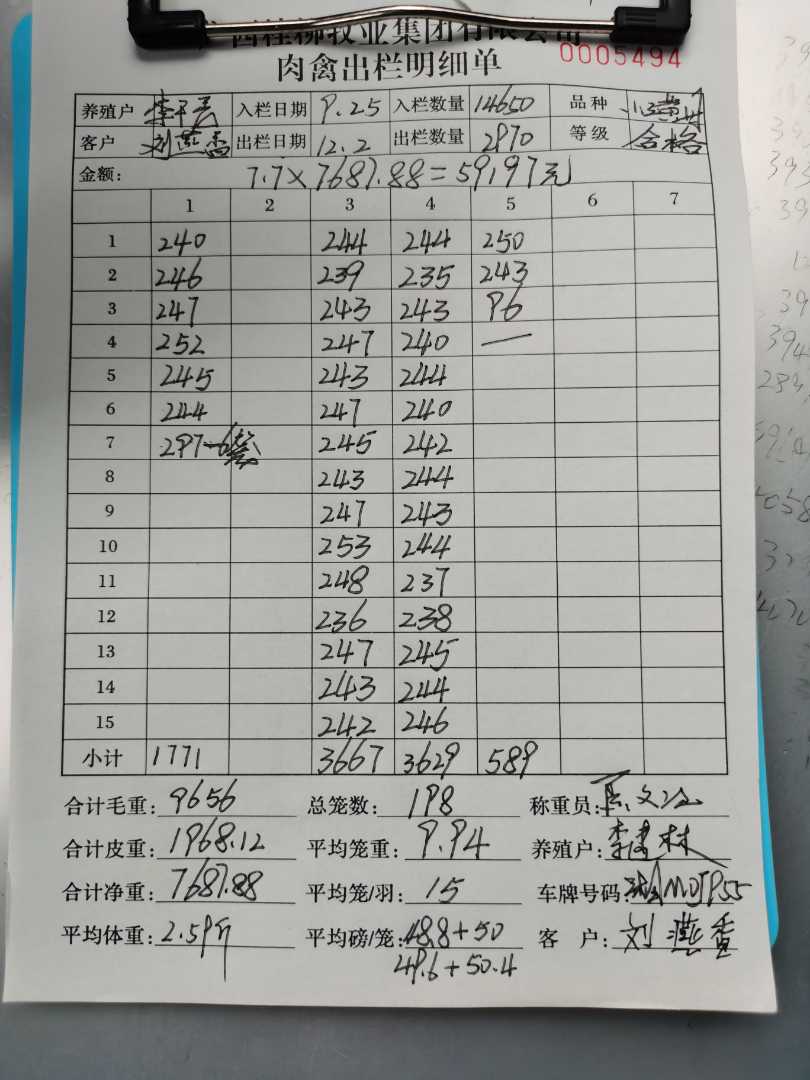 西桂柳牧业集团有限公司
肉禽出栏明细单 0005494
养殖户 入栏日期 9.25 入栏数量 14650 品种
客户 刘燕香 出栏日期 12.2 出栏数量 2970 等级 合格
金额: 7.7×7687.88=59197元
1 2 3 4 5 6 7
1 240 244 244 250
2 246 239 235 243
3 247 243 243 96
4 252 247 240 —
5 245 243 244
6 244 247 240
7 297-6 245 242
8 243 244
9 247 243
10 253 244
11 248 237
12 236 238
13 247 245
14 243 244
15 242 246
小计 1771 3667 3629 589
合计毛重: 9656 总笼数: 198 称重员:
合计皮重: 1968.12 平均笼重: 9.94 养殖户: 李建林
合计净重: 7687.88 平均笼/羽: 15 车牌号码:
平均体重: 2.59斤 平均磅/笼: 48.8+50 客 户: 刘燕香
49.6+50.4